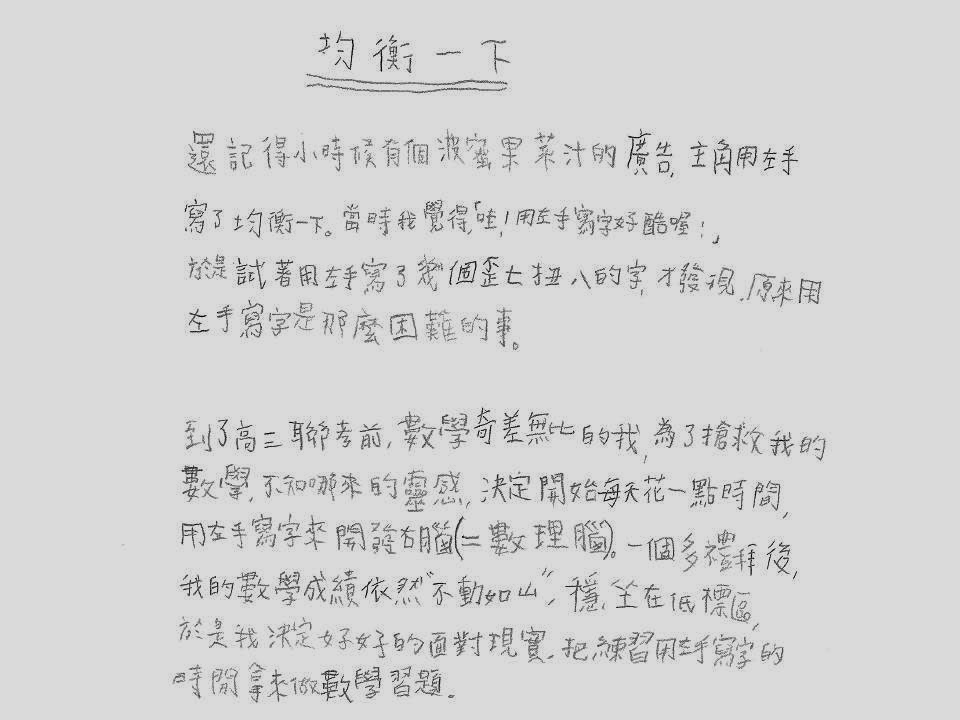 均衡一下
還記得小時候有個波蜜果菜汁的廣告,主角用左手
寫了均衡一下。當時我覺得,「哇!用左手寫字好酷喔!」
於是試著用左手寫了幾個歪七扭八的字,才發現,原來用
左手寫字是那麼困難的事。
到了高三聯考前,數學奇差無比的我,為了搶救我的
數學,不知哪來的靈感,決定開始每天花一點時間,
用左手寫字來開發右腦(=數理腦)。一個多禮拜後,
我的數學成績依然"不動如山",穩坐在低標區,
於是我決定好好的面對現實,把練習用左手寫字的
時間拿來做數學習題。